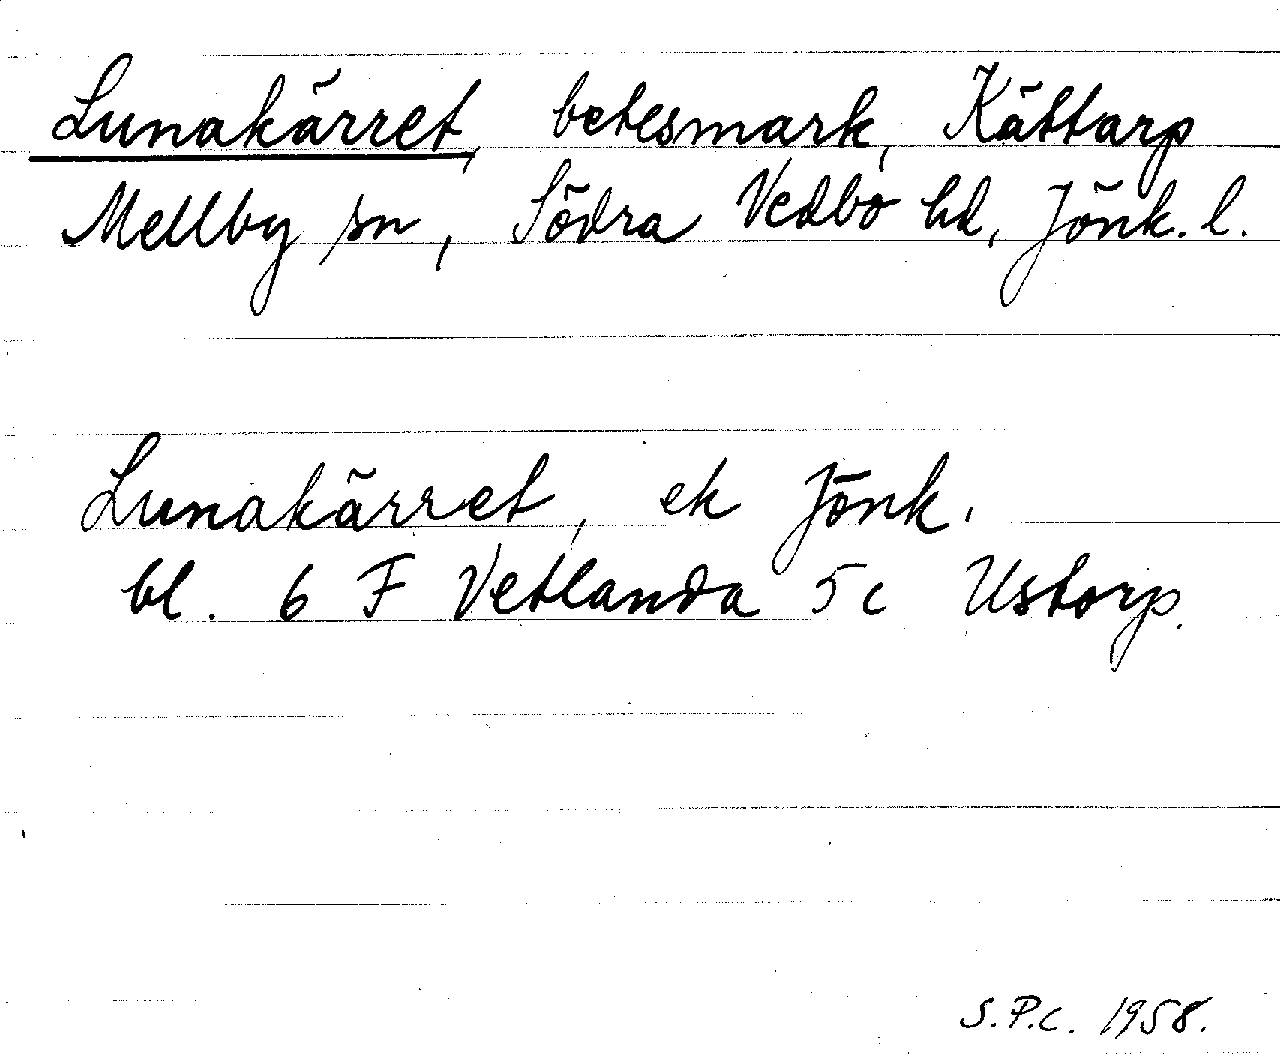 Lunakärret, betesmark, Kättarp
Mellby sn, Södra Vedbo hd, Jönk. l.
Lunakärret, ek Jönk.
bl. 6 F Vetlanda 5 c Ustorp.
S.P.C. 1958.